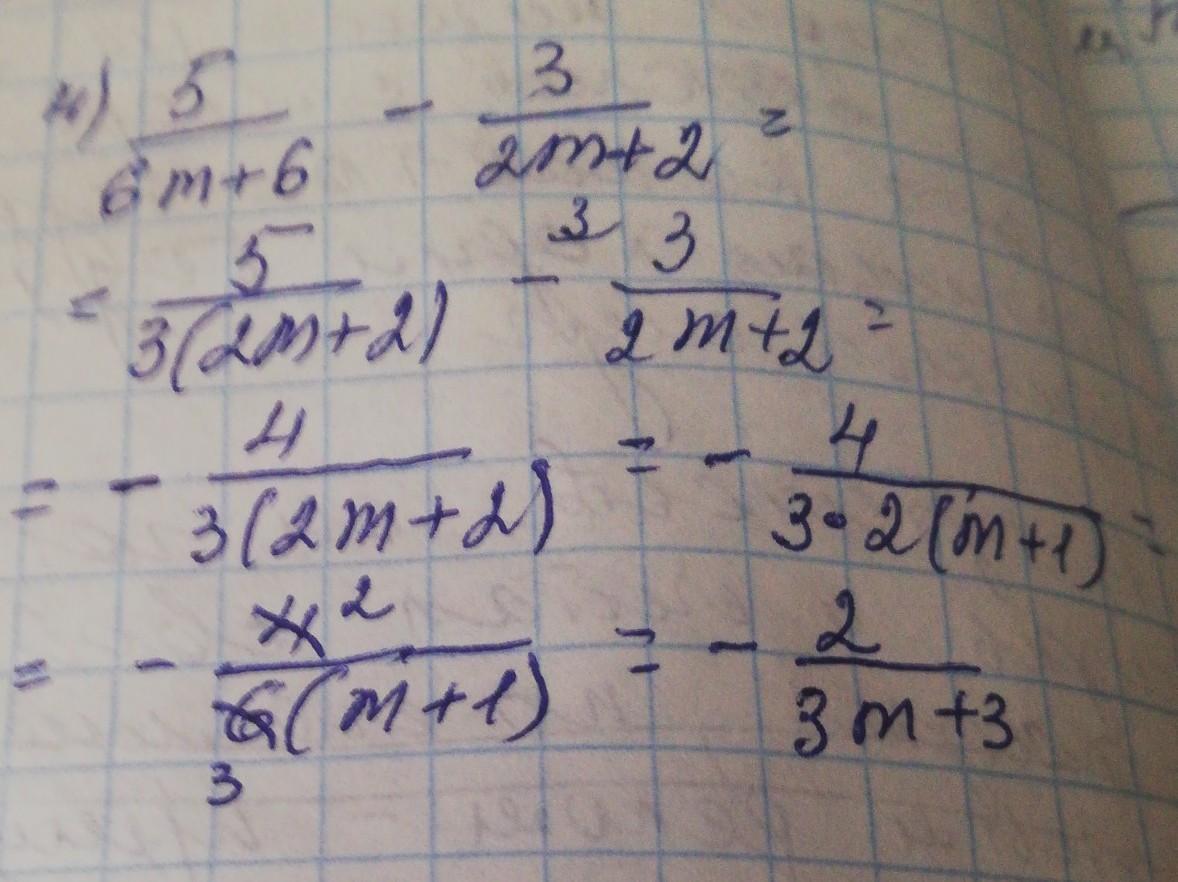 4) 5/(6m+6) - 3/(2m+2) =
= 5/(3(2m+2)) - ³⁾ 3/(2m+2) =
= - 4/(3(2m+2)) = - 4/(3·2(m+1)) =
= - 4²/(6₃(m+1)) = - 2/(3m+3)